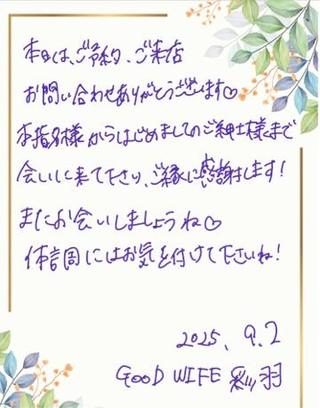 本日は、ご予約、ご来店
お問い合わせありがとうございます♡
本指名様からはじめましてのご紳士様まで
会いに来て下さり、ご縁に感謝します!
またお会いしましょうね♡
体調面にはお気を付けて下さいね!
2025. 9.2
GOOD WIFE 彩羽